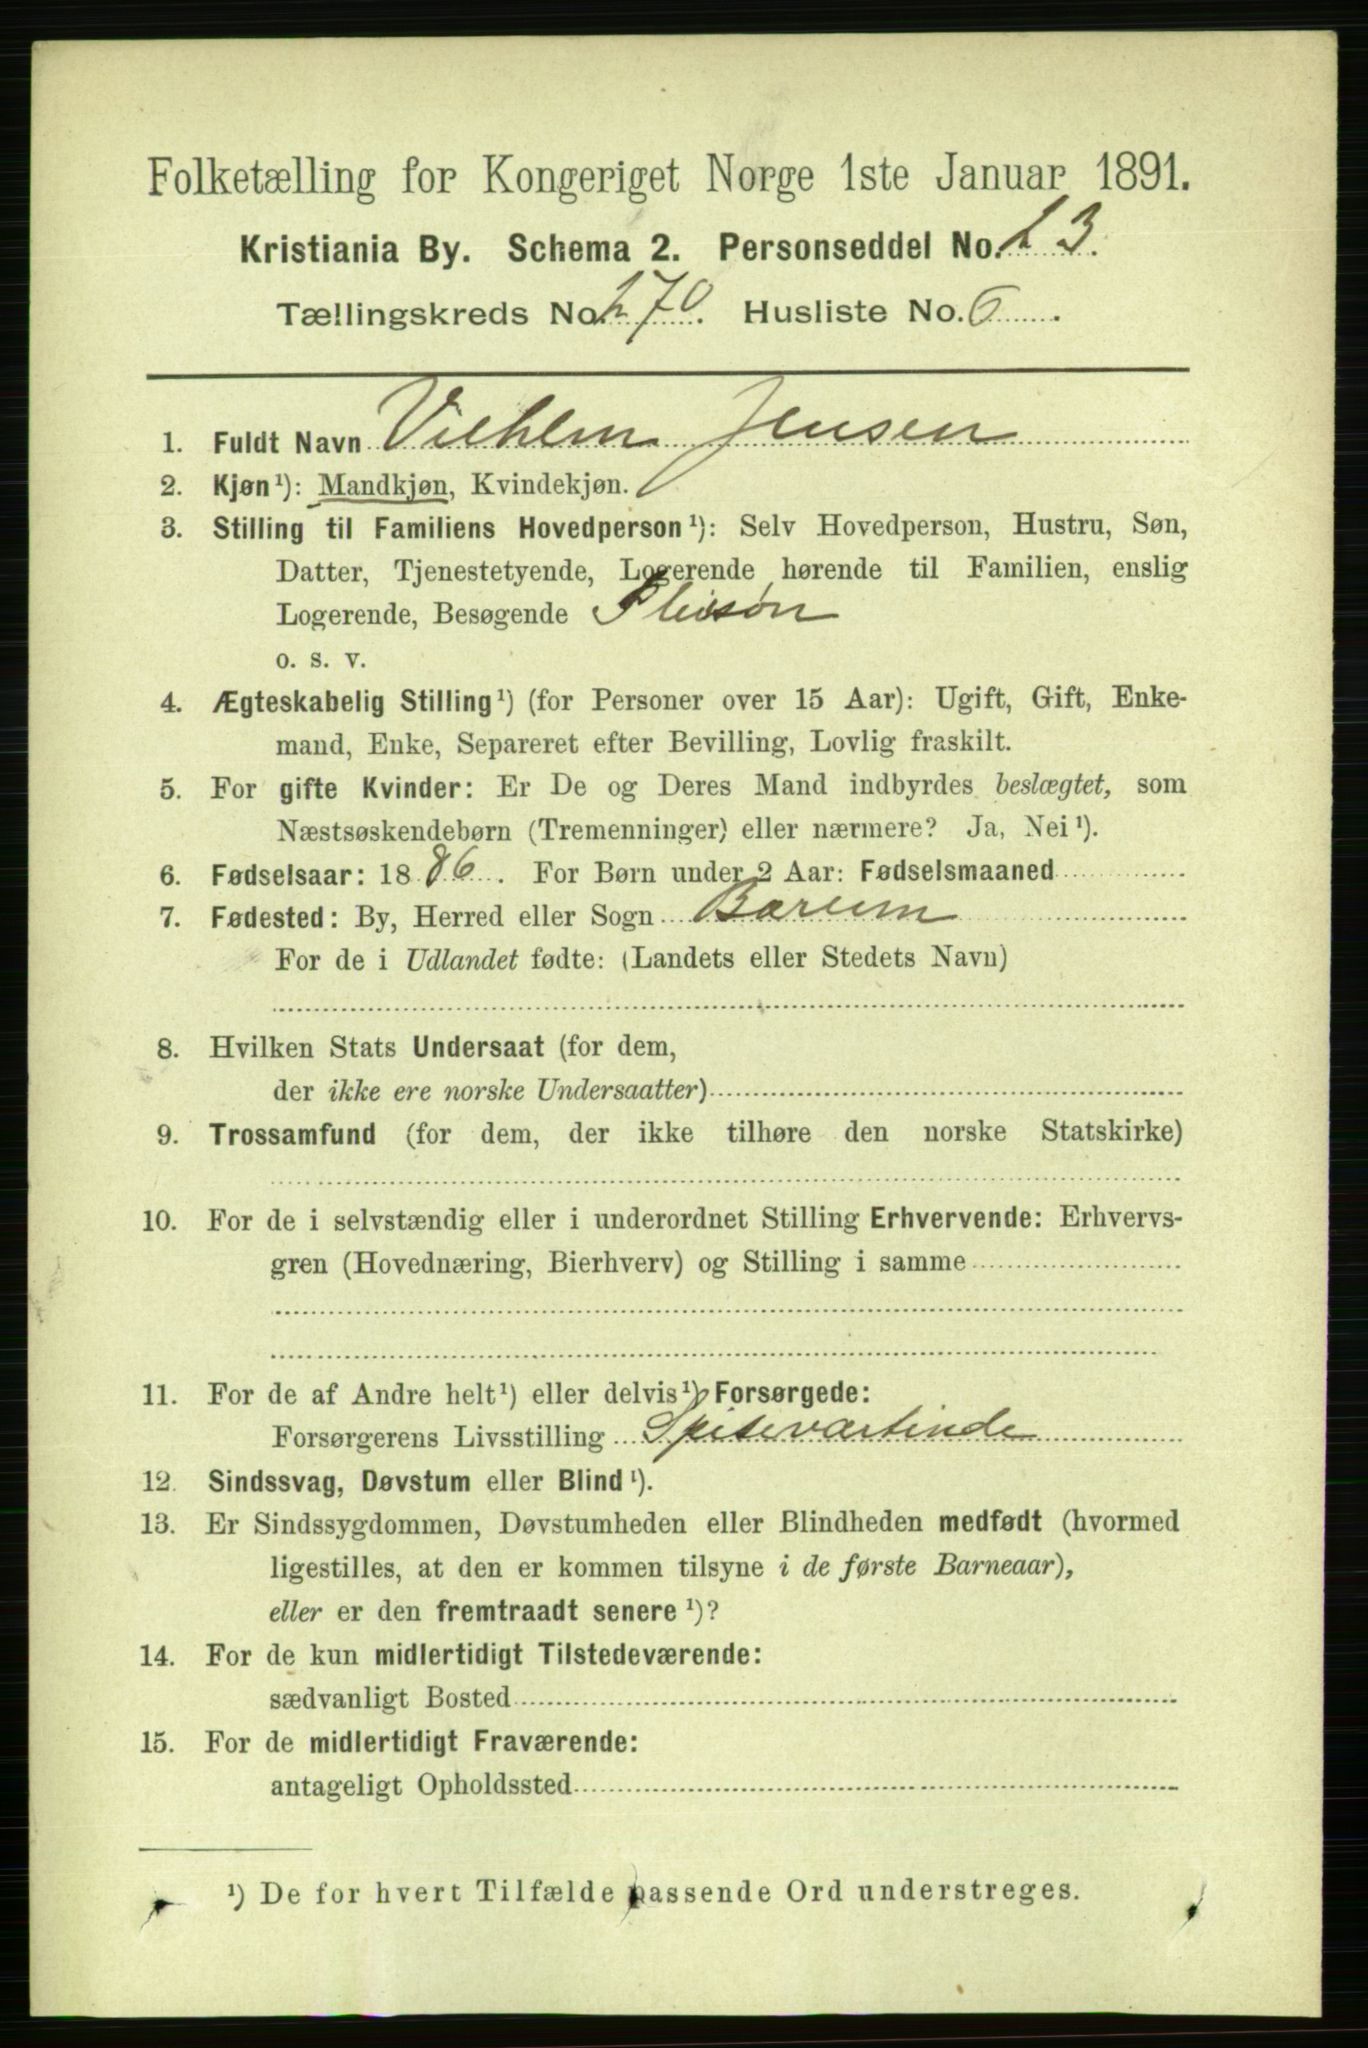 Folketælling for Kongeriget Norge 1ste Januar 1891.
Kristiania By. Schema 2. Personseddel No. 23.
Tællingskreds No. 270. Husliste No. 6.
1. Fuldt Navn Vilhlem Jensen
2. Kjøn¹): Mandkjøn, Kvindekjøn.
3. Stilling til Familiens Hovedperson¹): Selv Hovedperson, Hustru, Søn,
Datter, Tjenestetyende, Logerende hørende til Familien, enslig
Logerende, Besøgende Pleisøn
o. s. v.
4. Ægteskabelig Stilling¹) (for Personer over 15 Aar): Ugift, Gift, Enke-
mand, Enke, Separeret efter Bevilling, Lovlig fraskilt.
5. For gifte Kvinder: Er De og Deres Mand indbyrdes beslægtet, som
Næstsøskendebørn (Tremenninger) eller nærmere? Ja, Nei¹).
6. Fødselsaar: 1886. For Børn under 2 Aar: Fødselsmaaned
7. Fødested: By, Herred eller Sogn Bærum
For de i Udlandet fødte: (Landets eller Stedets Navn)
8. Hvilken Stats Undersaat (for dem,
der ikke ere norske Undersaatter)
9. Trossamfund (for dem, der ikke tilhøre den norske Statskirke)
10. For de i selvstændig eller i underordnet Stilling Erhvervende: Erhvervs-
gren (Hovednæring, Bierhverv) og Stilling i samme
11. For de af Andre helt¹) eller delvis¹) Forsørgede:
Forsørgerens Livsstilling Spiseværtinde
12. Sindssvag, Døvstum eller Blind¹).
13. Er Sindssygdommen, Døvstumheden eller Blindheden medfødt (hvormed
ligestilles, at den er kommen tilsyne i de første Barneaar),
eller er den fremtraadt senere¹)?
14. For de kun midlertidigt Tilstedeværende:
sædvanligt Bosted
15. For de midlertidigt Fraværende:
antageligt Opholdssted
¹) De for hvert Tilfælde passende Ord understreges.